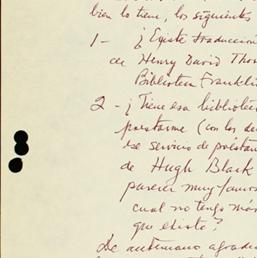 bien lo tiene, los siguientes
1 - ¿Existe traducción
de Henry David Tho
Biblioteca Franklin
2 - ¿Tiene esa bibliotec
prestarme (con los de
ese servicio de présta
de Hugh Black
parecer muy famos
cual no tengo más
que existe?
De antemano agrade